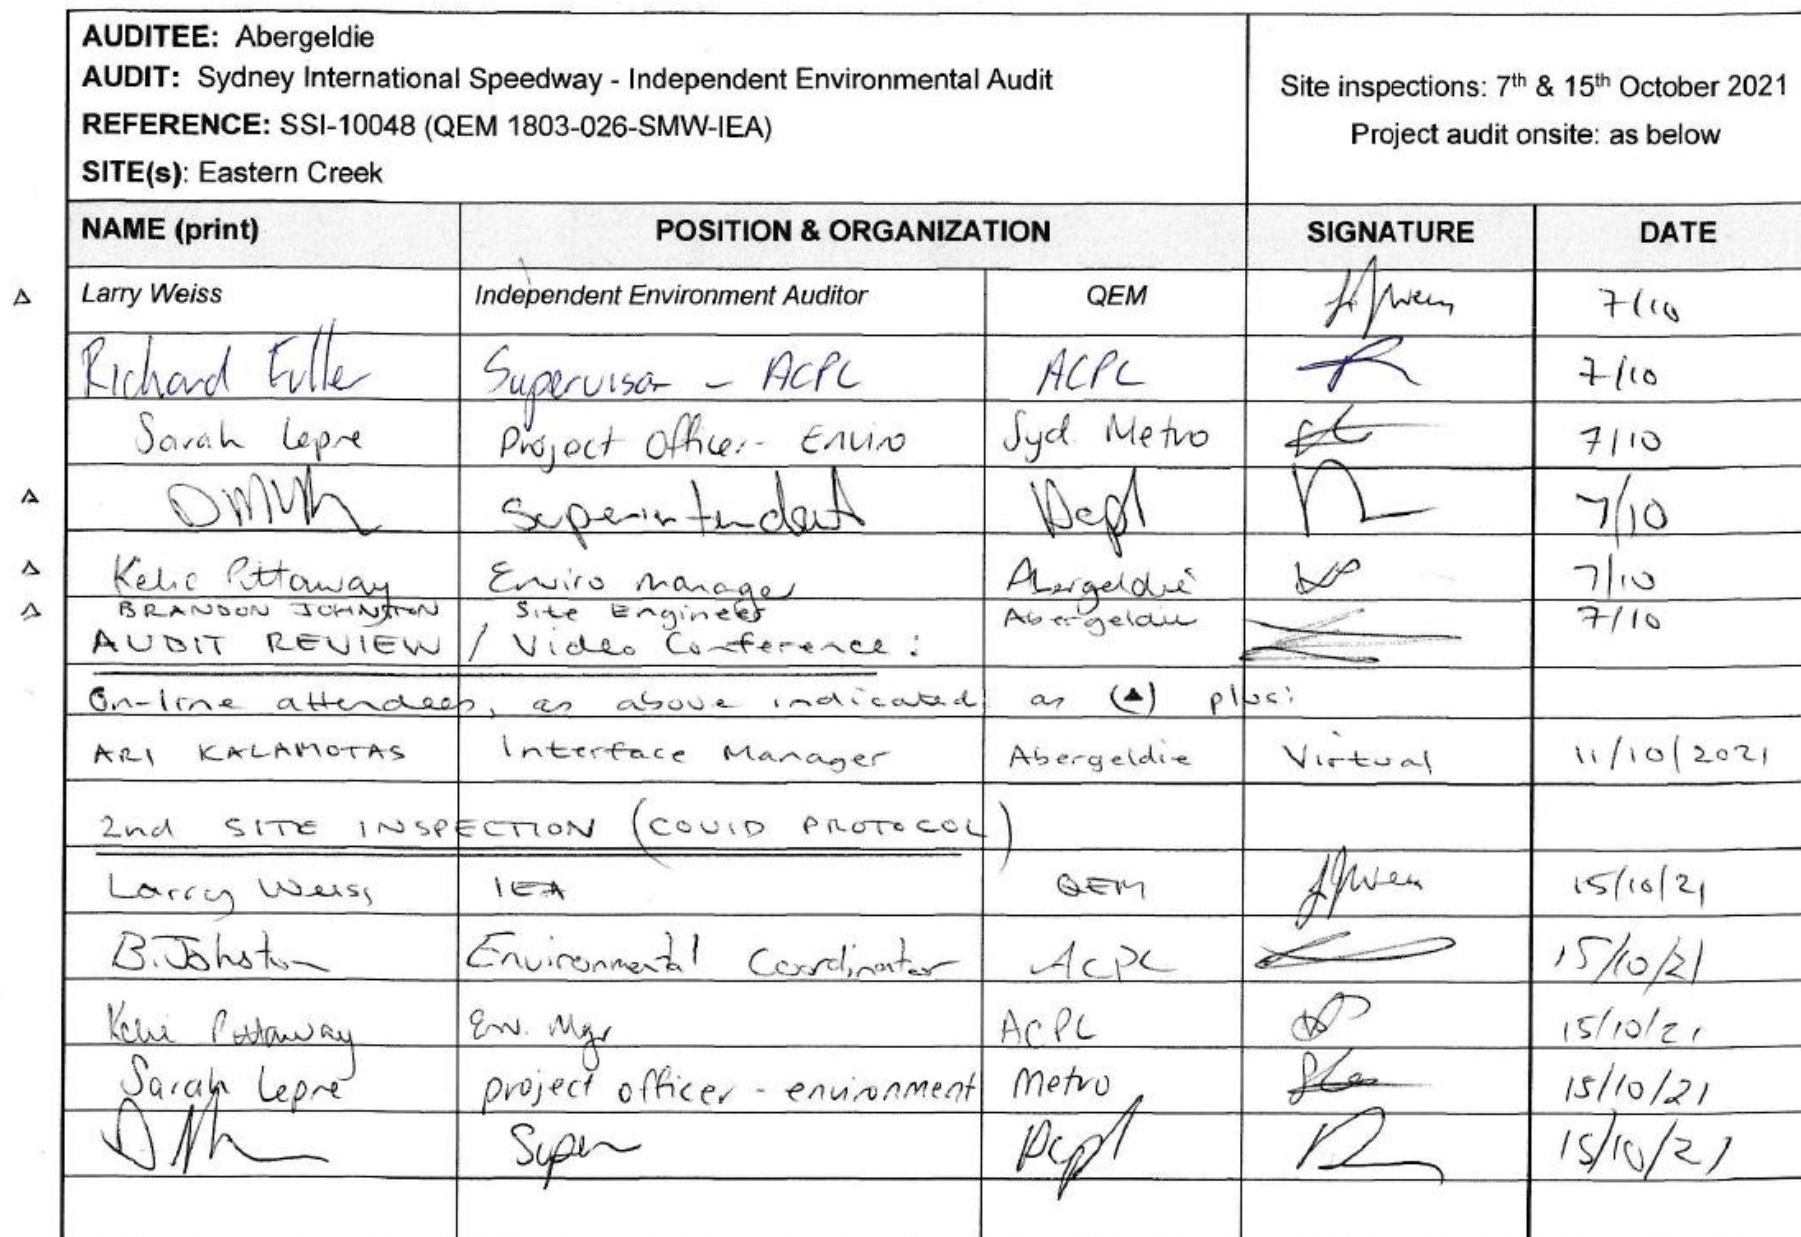 AUDITEE: Abergeldie
AUDIT: Sydney International Speedway - Independent Environmental Audit
REFERENCE: SSI-10048 (QEM 1803-026-SMW-IEA)
SITE(s): Eastern Creek
Site inspections: 7th & 15th October 2021
Project audit onsite: as below
NAME (print) POSITION & ORGANIZATION SIGNATURE DATE
Larry Weiss Independent Environment Auditor QEM 7/10
Richard Fuller Supervisor - ACPL ACPL 7/10
Sarah Lepre Project Officer - Enviro Syd. Metro 7/10
Superintendent Acpl 7/10
Kelie Pottaway Enviro Manager Abergeldie 7/10
BRANDON JOHNSTON Site Engineer Abergeldie 7/10
AUDIT REVIEW / Video Conference:
On-line attendees, as above indicated as (▲) plus:
ARI KALAMOTAS Interface Manager Abergeldie Virtual 11/10/2021
2nd SITE INSPECTION (COVID PROTOCOL)
Larry Weiss IEA QEM 15/10/21
B.Johston Environmental Coordinator ACPL 15/10/21
Kelie Pottaway Env. Mgr ACPL 15/10/21
Sarah Lepre project officer - environment Metro 15/10/21
Super Acpl 15/10/21